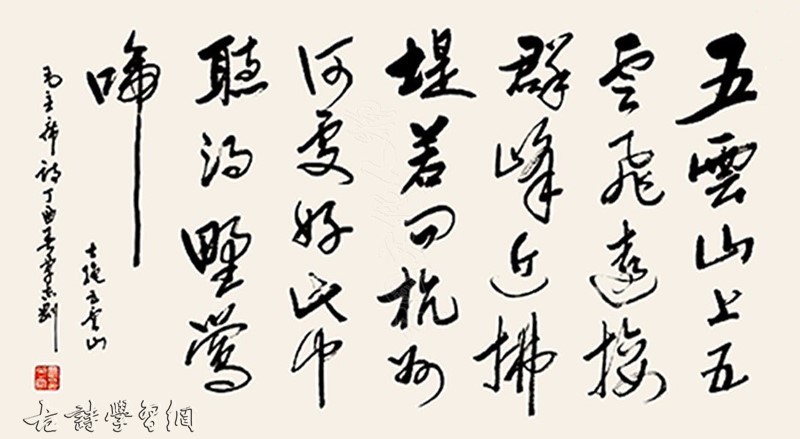 五雲山上五
雲飛遠接
群峰近拂
堤若问杭州
何處好此中
聽得野鶯
啼
七绝五云山
毛主席詩丁酉春
古詩學習網